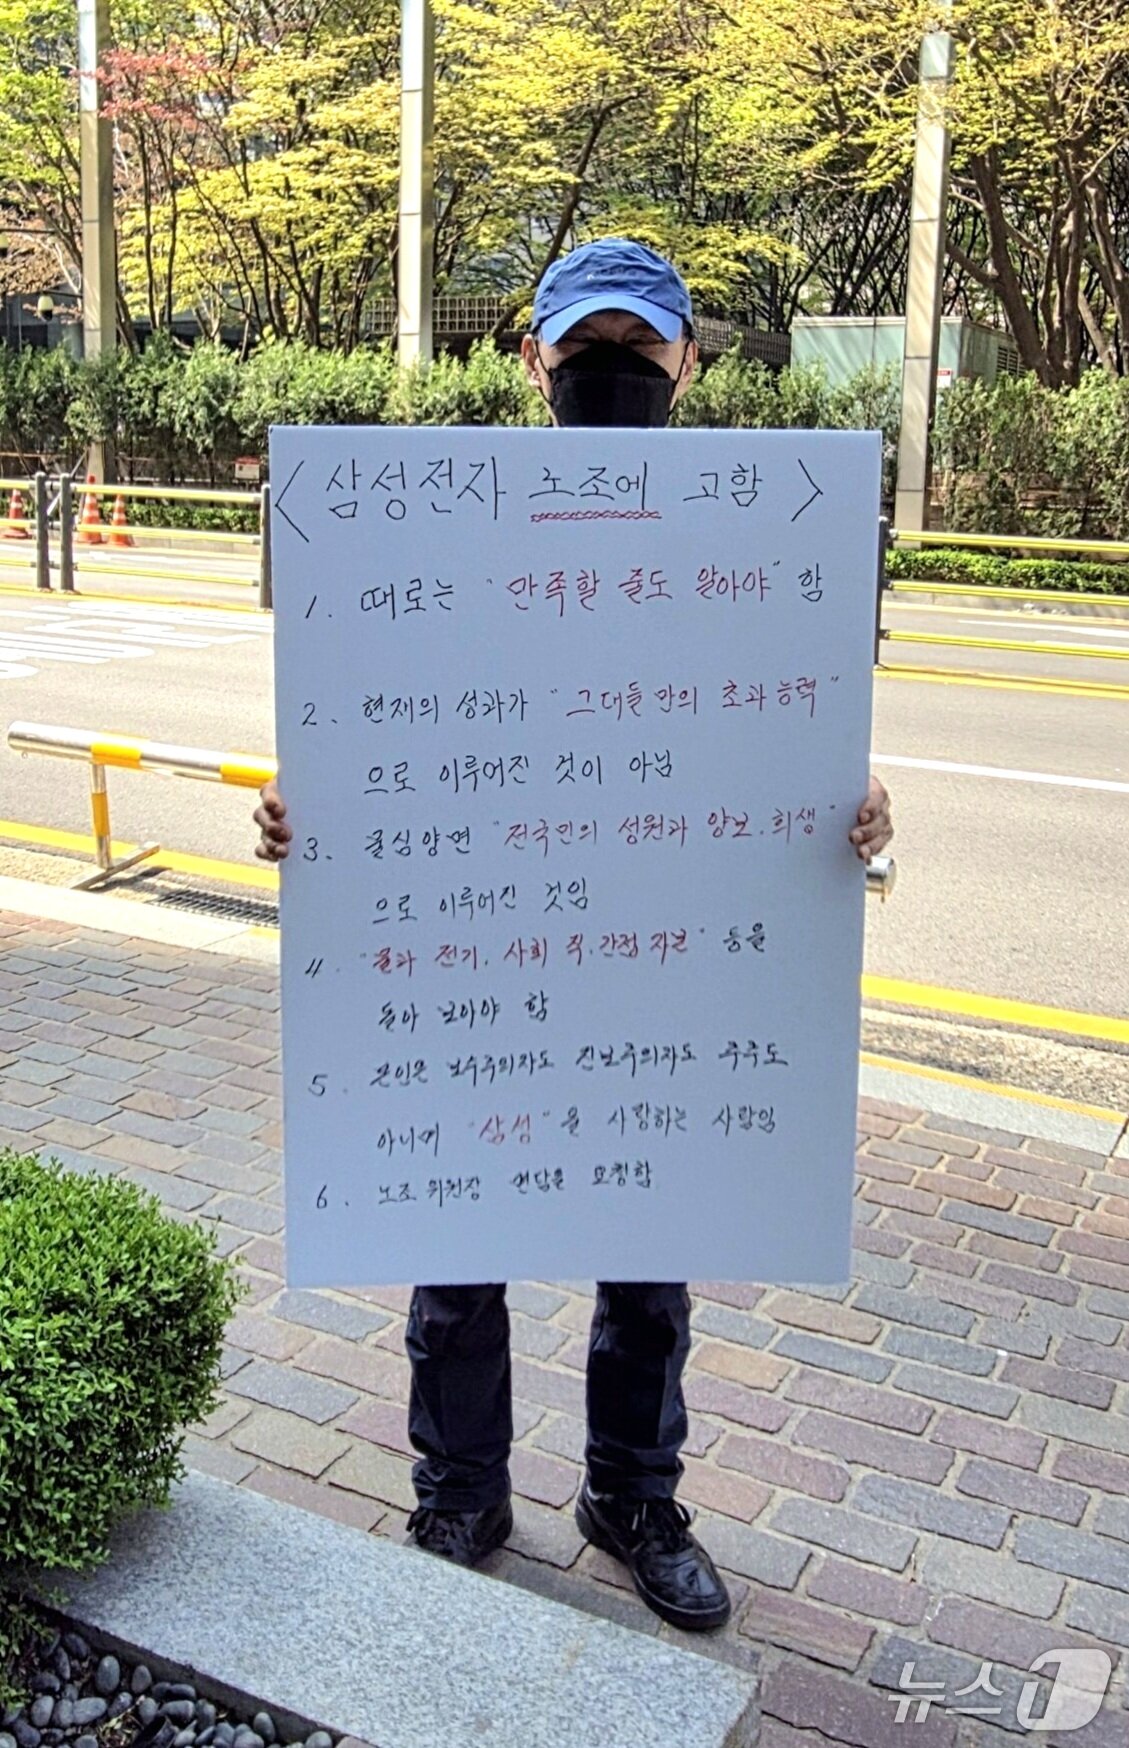 〈 삼성전자 노조에 고함 〉
1. 때로는 "만족할 줄도 알아야" 함
2. 현재의 성과가 "그대들만의 초과능력"
으로 이루어진 것이 아님
3. 물심양면 "전국민의 성원과 양보.희생"
으로 이루어진 것임
4. "물과 전기, 사회 직.간접 자본" 등을
돌아 보아야 함
5. 본인은 보수주의자도 진보주의자도 주주도
아니며 "삼성"을 사랑하는 사람임
6. 노조 위원장 면담을 요청함
뉴스1